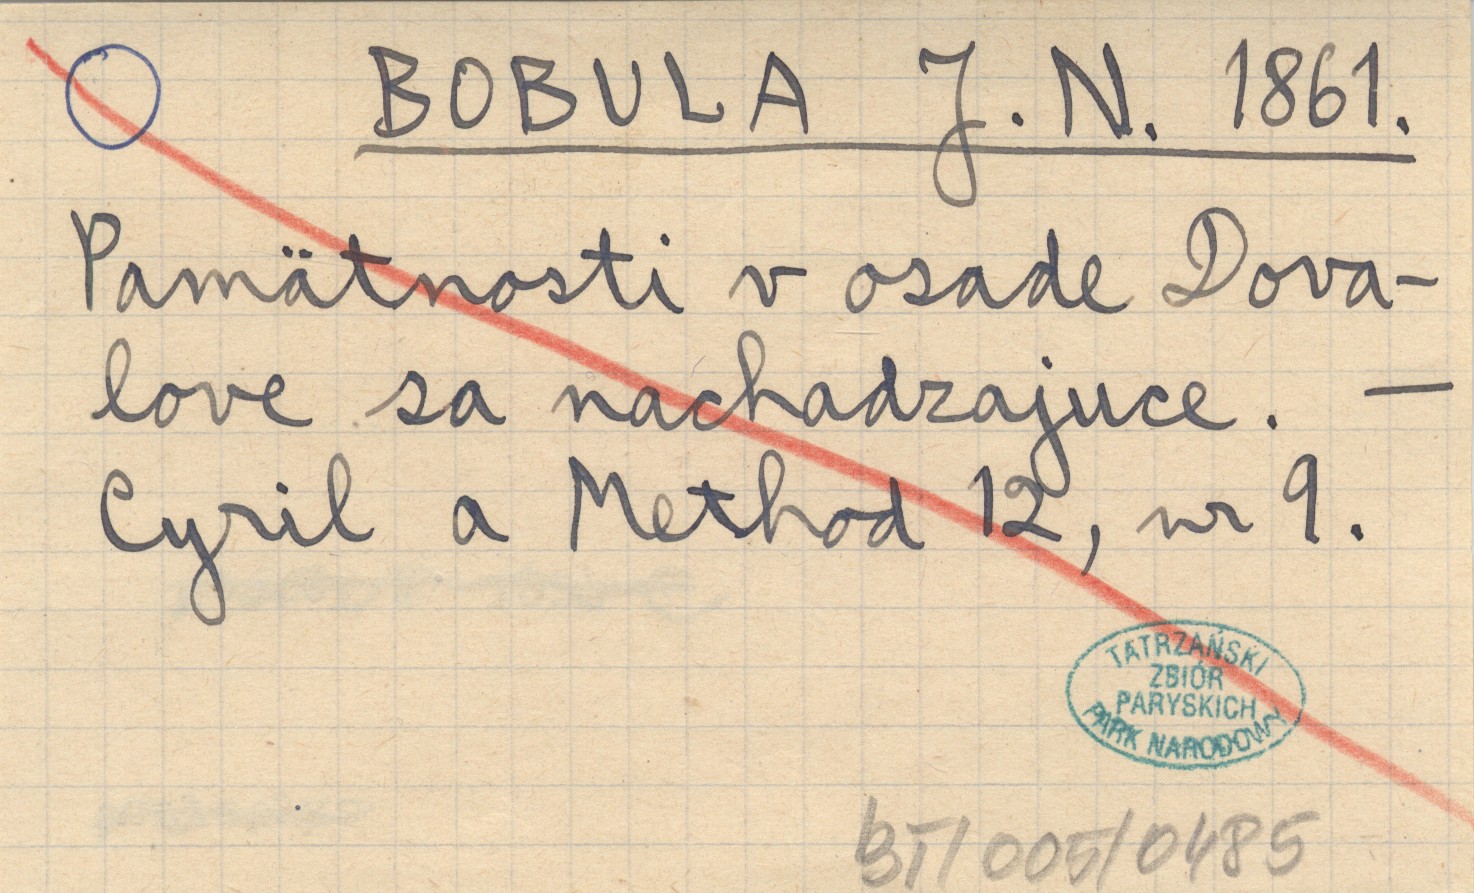 BOBULA J. N. 1861.
Pamätnosti v osade Dova-
love sa nachadzajuce. —
Cyril a Method 12, nr 9.
TATRZAŃSKI
ZBIÓR
PARYSKICH
PARK NARODOWY
BT/005/0485